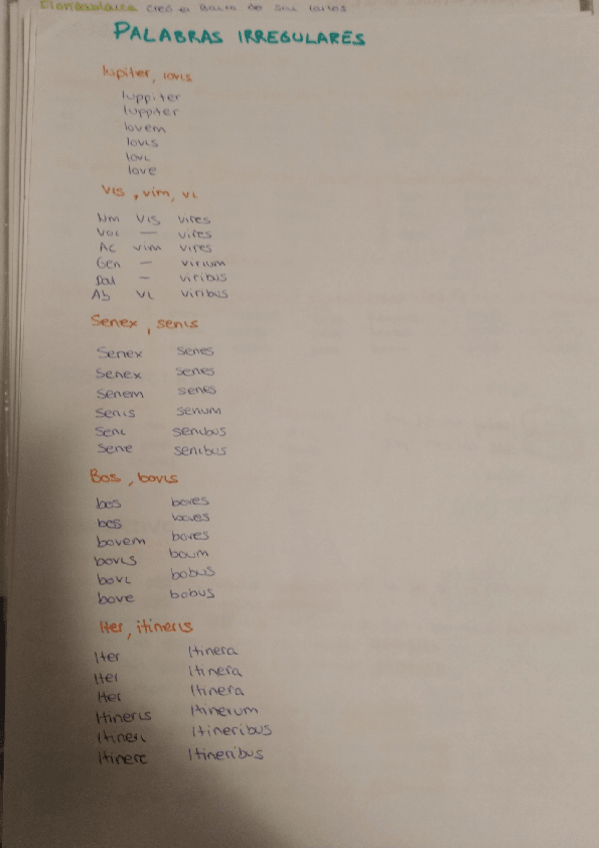 Floridablanca creó el Banco de San Carlos
PALABRAS IRREGULARES
Iupiter, Iovis
Iuppiter
Iuppiter
Iovem
Iovis
Iovi
Iove
Vis, vim, vi
Nm vis vires
Voc — vires
AC vim vires
Gen — virium
Dat — viribus
Ab vi viribus
Senex, senis
Senex senes
Senex senes
Senem senes
Senis senum
Seni senibus
Sene senibus
Bos, bovis
bos boves
bos boves
bovem boves
bovis boum
bovi bobus
bove bobus
Iter, itineris
Iter Itinera
Iter Itinera
Iter Itinera
Itineris Itinerum
Itineri Itineribus
Itinere Itineribus